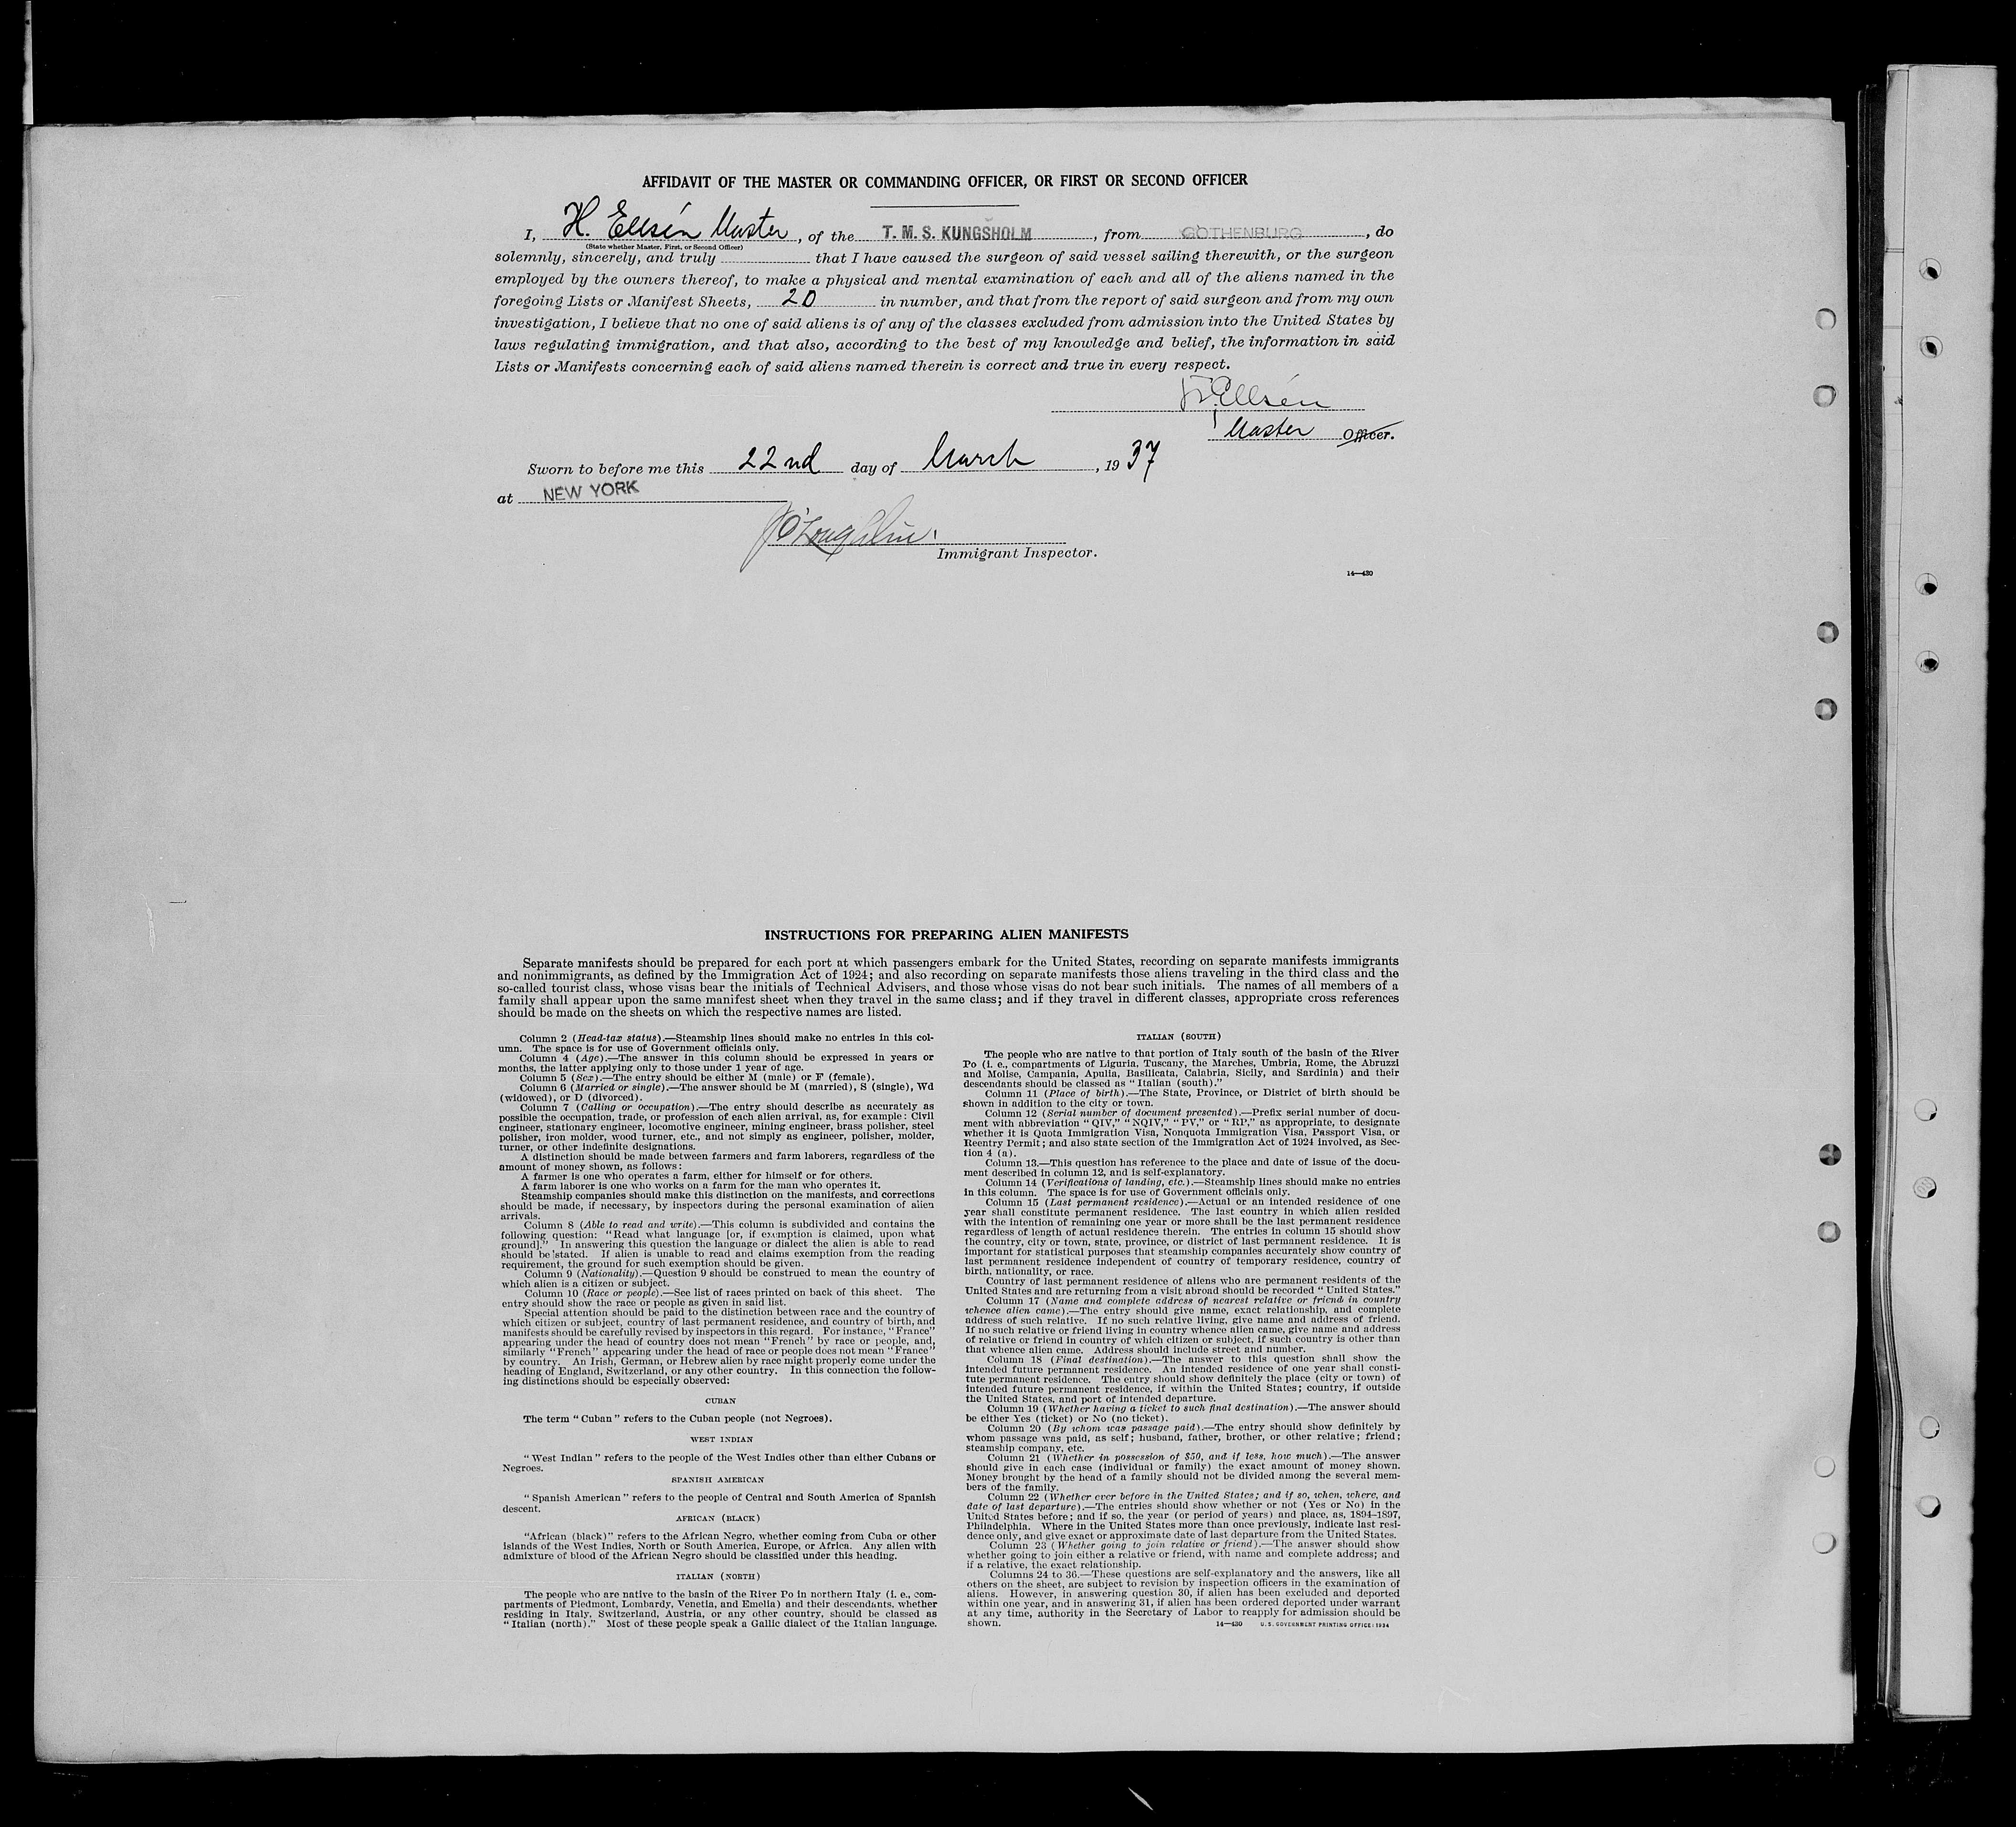 AFFIDAVIT OF THE MASTER OR COMMANDING OFFICER, OR FIRST OR SECOND OFFICER
I, H. Ellsén Master, of the T. M. S. KUNGSHOLM, from GOTHENBURG, do
(State whether Master, First, or Second Officer)
solemnly, sincerely, and truly that I have caused the surgeon of said vessel sailing therewith, or the surgeon
employed by the owners thereof, to make a physical and mental examination of each and all of the aliens named in the
foregoing Lists or Manifest Sheets, 20 in number, and that from the report of said surgeon and from my own
investigation, I believe that no one of said aliens is of any of the classes excluded from admission into the United States by
laws regulating immigration, and that also, according to the best of my knowledge and belief, the information in said
Lists or Manifests concerning each of said aliens named therein is correct and true in every respect.
H. Ellsén
Master Officer.
Sworn to before me this 22nd day of March, 1937
at NEW YORK
J O'Loughlin.
Immigrant Inspector.
14—430
INSTRUCTIONS FOR PREPARING ALIEN MANIFESTS
Separate manifests should be prepared for each port at which passengers embark for the United States, recording on separate manifests immigrants
and nonimmigrants, as defined by the Immigration Act of 1924; and also recording on separate manifests those aliens traveling in the third class and the
so-called tourist class, whose visas bear the initials of Technical Advisers, and those whose visas do not bear such initials. The names of all members of a
family shall appear upon the same manifest sheet when they travel in the same class; and if they travel in different classes, appropriate cross references
should be made on the sheets on which the respective names are listed.
Column 2 (Head-tax status).—Steamship lines should make no entries in this col-
umn. The space is for use of Government officials only.
Column 4 (Age).—The answer in this column should be expressed in years or
months, the latter applying only to those under 1 year of age.
Column 5 (Sex).—The entry should be either M (male) or F (female).
Column 6 (Married or single).—The answer should be M (married), S (single), Wd
(widowed), or D (divorced).
Column 7 (Calling or occupation).—The entry should describe as accurately as
possible the occupation, trade, or profession of each alien arrival, as, for example: Civil
engineer, stationary engineer, locomotive engineer, mining engineer, brass polisher, steel
polisher, iron molder, wood turner, etc., and not simply as engineer, polisher, molder,
turner, or other indefinite designations.
A distinction should be made between farmers and farm laborers, regardless of the
amount of money shown, as follows:
A farmer is one who operates a farm, either for himself or for others.
A farm laborer is one who works on a farm for the man who operates it.
Steamship companies should make this distinction on the manifests, and corrections
should be made, if necessary, by inspectors during the personal examination of alien
arrivals.
Column 8 (Able to read and write).—This column is subdivided and contains the
following question: "Read what language [or, if exemption is claimed, upon what
ground]." In answering this question the language or dialect the alien is able to read
should be stated. If alien is unable to read and claims exemption from the reading
requirement, the ground for such exemption should be given.
Column 9 (Nationality).—Question 9 should be construed to mean the country of
which alien is a citizen or subject.
Column 10 (Race or people).—See list of races printed on back of this sheet. The
entry should show the race or people as given in said list.
Special attention should be paid to the distinction between race and the country of
which citizen or subject, country of last permanent residence, and country of birth, and
manifests should be carefully revised by inspectors in this regard. For instance, "France"
appearing under the head of country does not mean "French" by race or people, and,
similarly "French" appearing under the head of race or people does not mean "France"
by country. An Irish, German, or Hebrew alien by race might properly come under the
heading of England, Switzerland, or any other country. In this connection the follow-
ing distinctions should be especially observed:
CUBAN
The term "Cuban" refers to the Cuban people (not Negroes).
WEST INDIAN
"West Indian" refers to the people of the West Indies other than either Cubans or
Negroes.
SPANISH AMERICAN
"Spanish American" refers to the people of Central and South America of Spanish
descent.
AFRICAN (BLACK)
"African (black)" refers to the African Negro, whether coming from Cuba or other
islands of the West Indies, North or South America, Europe, or Africa. Any alien with
admixture of blood of the African Negro should be classified under this heading.
ITALIAN (NORTH)
The people who are native to the basin of the River Po in northern Italy (i. e., com-
partments of Piedmont, Lombardy, Venetia, and Emelia) and their descendants, whether
residing in Italy, Switzerland, Austria, or any other country, should be classed as
"Italian (north)." Most of these people speak a Gallic dialect of the Italian language.
ITALIAN (SOUTH)
The people who are native to that portion of Italy south of the basin of the River
Po (i. e., compartments of Liguria, Tuscany, the Marches, Umbria, Rome, the Abruzzi
and Molise, Campania, Apulia, Basilicata, Calabria, Sicily, and Sardinia) and their
descendants should be classed as "Italian (south)."
Column 11 (Place of birth).—The State, Province, or District of birth should be
shown in addition to the city or town.
Column 12 (Serial number of document presented).—Prefix serial number of docu-
ment with abbreviation "QIV," "NQIV," "PV," or "RP," as appropriate, to designate
whether it is Quota Immigration Visa, Nonquota Immigration Visa, Passport Visa, or
Reentry Permit; and also state section of the Immigration Act of 1924 involved, as Sec-
tion 4 (a).
Column 13.—This question has reference to the place and date of issue of the docu-
ment described in column 12, and is self-explanatory.
Column 14 (Verifications of landing, etc.).—Steamship lines should make no entries
in this column. The space is for use of Government officials only.
Column 15 (Last permanent residence).—Actual or an intended residence of one
year shall constitute permanent residence. The last country in which alien resided
with the intention of remaining one year or more shall be the last permanent residence
regardless of length of actual residence therein. The entries in column 15 should show
the country, city or town, state, province, or district of last permanent residence. It is
important for statistical purposes that steamship companies accurately show country of
last permanent residence independent of country of temporary residence, country of
birth, nationality, or race.
Country of last permanent residence of aliens who are permanent residents of the
United States and are returning from a visit abroad should be recorded "United States."
Column 17 (Name and complete address of nearest relative or friend in country
whence alien came).—The entry should give name, exact relationship, and complete
address of such relative. If no such relative living, give name and address of friend.
If no such relative or friend living in country whence alien came, give name and address
of relative or friend in country of which citizen or subject, if such country is other than
that whence alien came. Address should include street and number.
Column 18 (Final destination).—The answer to this question shall show the
intended future permanent residence. An intended residence of one year shall consti-
tute permanent residence. The entry should show definitely the place (city or town) of
intended future permanent residence, if within the United States; country, if outside
the United States, and port of intended departure.
Column 19 (Whether having a ticket to such final destination).—The answer should
be either Yes (ticket) or No (no ticket).
Column 20 (By whom was passage paid).—The entry should show definitely by
whom passage was paid, as self; husband, father, brother, or other relative; friend;
steamship company, etc.
Column 21 (Whether in possession of $50, and if less, how much).—The answer
should give in each case (individual or family) the exact amount of money shown.
Money brought by the head of a family should not be divided among the several mem-
bers of the family.
Column 22 (Whether ever before in the United States; and if so, when, where, and
date of last departure).—The entries should show whether or not (Yes or No) in the
United States before; and if so, the year (or period of years) and place, as, 1894-1897,
Philadelphia. Where in the United States more than once previously, indicate last resi-
dence only, and give exact or approximate date of last departure from the United States.
Column 23 (Whether going to join relative or friend).—The answer should show
whether going to join either a relative or friend, with name and complete address; and
if a relative, the exact relationship.
Columns 24 to 36.—These questions are self-explanatory and the answers, like all
others on the sheet, are subject to revision by inspection officers in the examination of
aliens. However, in answering question 30, if alien has been excluded and deported
within one year, and in answering 31, if alien has been ordered deported under warrant
at any time, authority in the Secretary of Labor to reapply for admission should be
shown.
14—430 U.S. GOVERNMENT PRINTING OFFICE: 1934